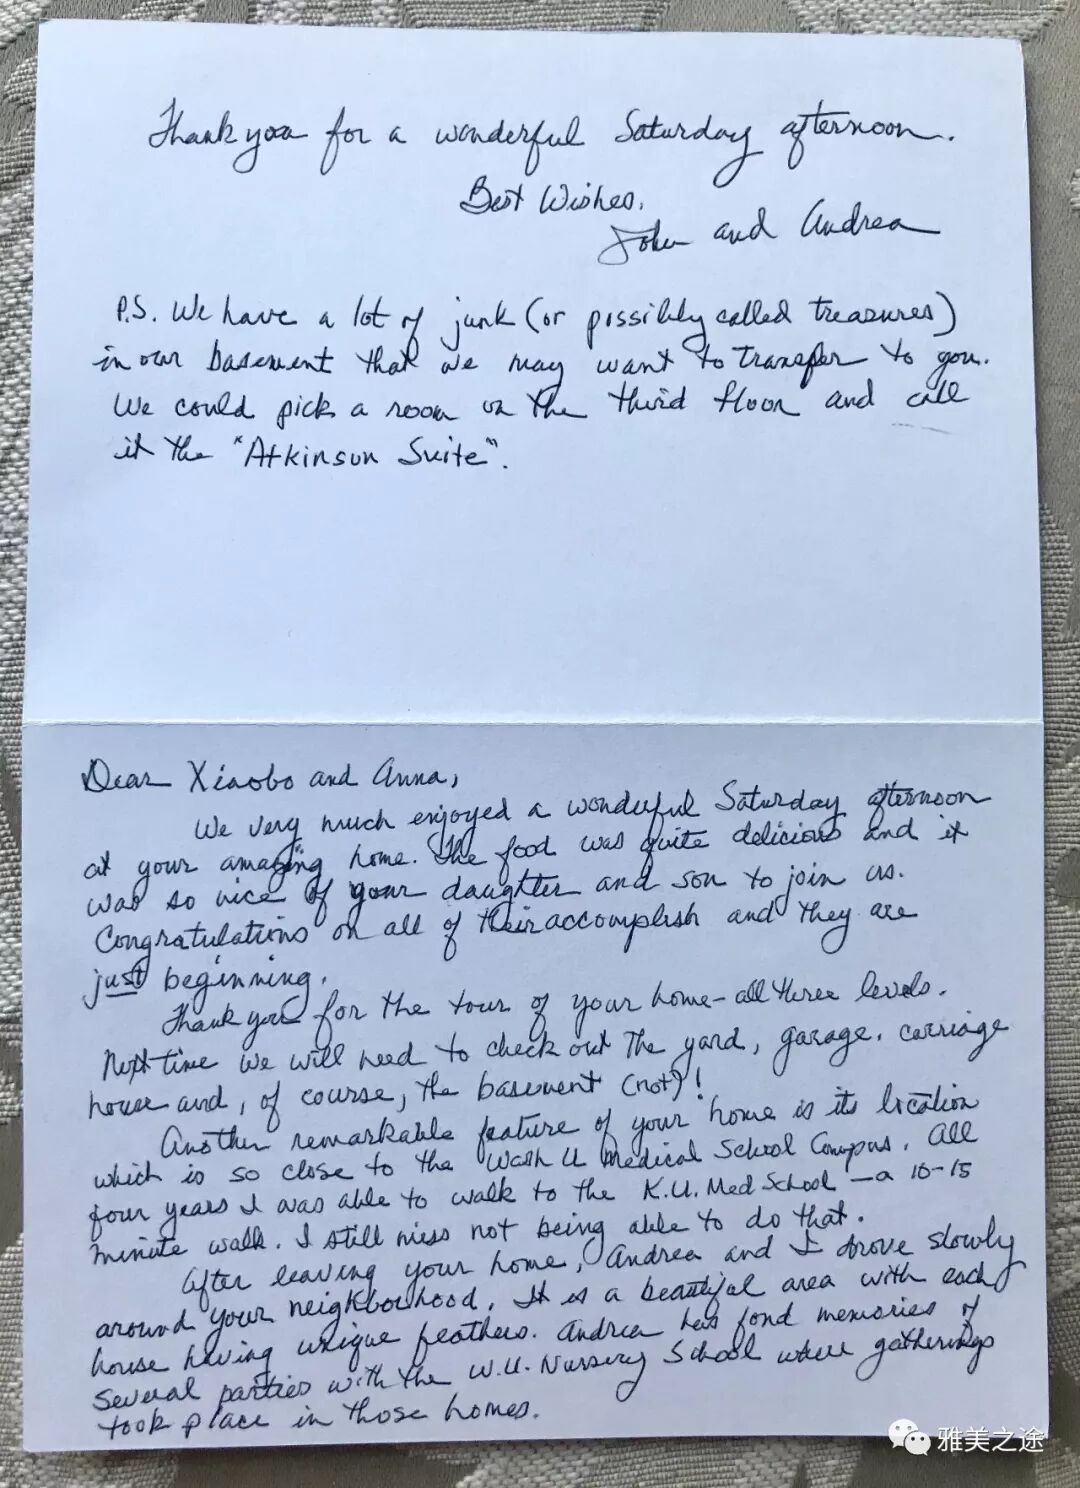 Thank you for a wonderful Saturday afternoon.
Best Wishes,
John and Andrea
P.S. We have a lot of junk (or possibly called treasures)
in our basement that we may want to transfer to you.
We could pick a room on the third floor and call
it the "Atkinson Suite".
Dear Xiaobo and Anna,
We very much enjoyed a wonderful Saturday afternoon
at your amazing home. The food was quite delicious and it
was so nice of your daughter and son to join us.
Congratulations on all of their accomplish and they are
just beginning.
Thank you for the tour of your home - all three levels.
Next time we will need to check out the yard, garage, carriage
house and, of course, the basement (not)!
Another remarkable feature of your home is its location
which is so close to the Wash U Medical School Campus. All
four years I was able to walk to the K.U. Med School - a 10-15
minute walk. I still miss not being able to do that.
After leaving your home, Andrea and I drove slowly
around your neighborhood. It is a beautiful area with each
house having unique feathers. Andrea has fond memories of
several parties with the W.U. Nursery School where gatherings
took place in those homes.
雅美之途